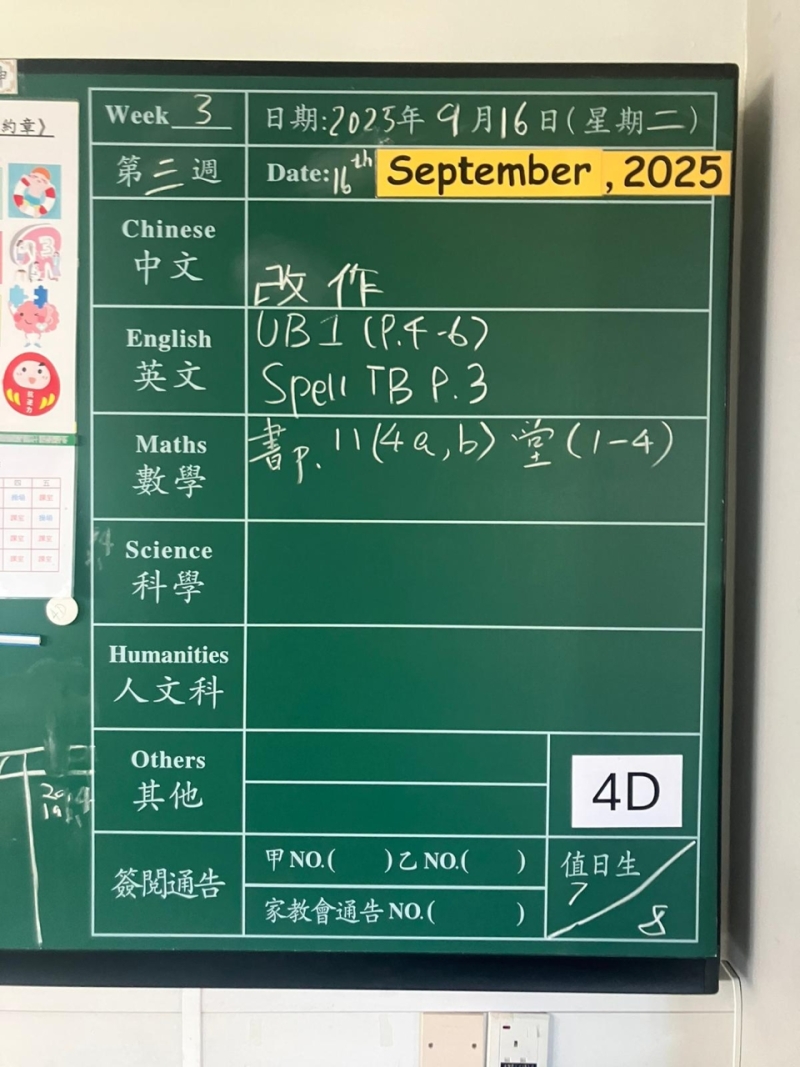 約章》
四 五
Week 3
日期:2025年 9月16日(星期二)
第三週
Date:16th September , 2025
Chinese
中文
改作
English
英文
UB1 (P.4-6)
Spell TB P.3
Maths
數學
書P. 11(4a,b) 堂(1-4)
Science
科學
Humanities
人文科
Others
其他
4D
簽閱通告
甲NO.( )乙NO.( )
家教會通告NO.( )
值日生
7 / 8